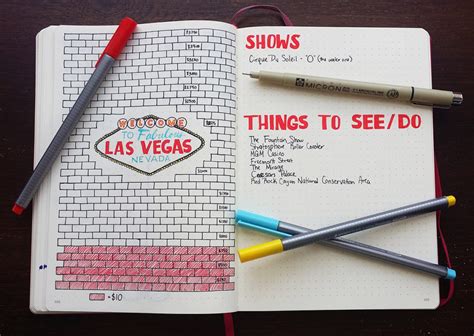 WELCOME
TO Fabulous
LAS VEGAS
NEVADA
$750
$500
$250
= $10
SHOWS
Cirque Du Soleil - "O" (the water one)
MICRON
THINGS TO SEE/DO
The Fountain Show
Stratosphere Roller Coaster
MGM Casino
Freemont Street
The Mirage
Caesar Palace
Red Rock Canyon National Conservation Area